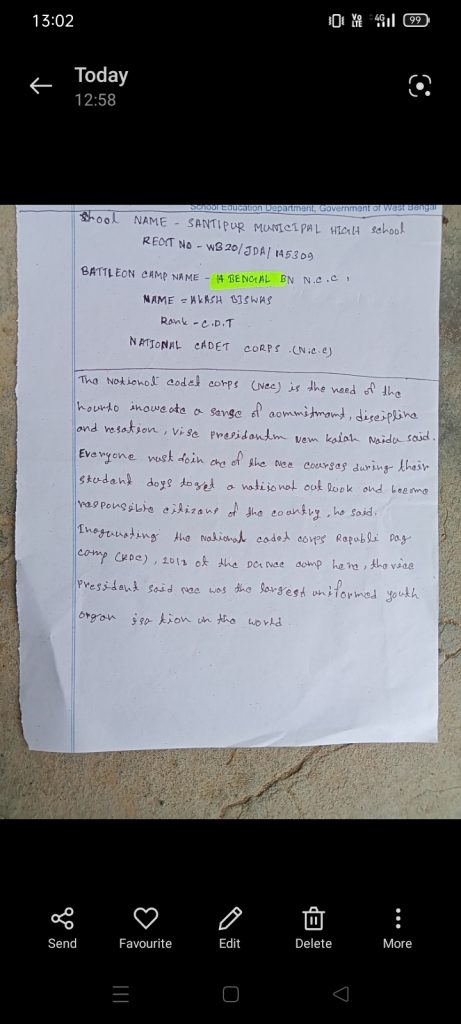 13:02
Vo LTE 4G 99
Today
12:58
School Education Department, Government of West Bengal
School NAME - SANTIPUR MUNICIPAL HIGH School
REGT NO - WB20/JDA/145309
BATTLEON CAMP NAME - 14 BENGAL BN N.C.C,
NAME = AKASH BISWAS
Rank - C.D.T
NATIONAL CADET CORPS (N.C.C)
The National cadet corps (Ncc) is the need of the
hourto a sense of commitment, discipline
and, vise presidentm Vem kaiah Naidu said.
Everyone must join one of the ncc courses during their
student days toget a national out look and become
responsible citizens of the country, he said.
the national cadet corps Republi Day
camp (RDC), 2018 at the DG NCC camp here, the vice
president said ncc was the largest uniformed youth
organ isa tion in the world.
Send
Favourite
Edit
Delete
More